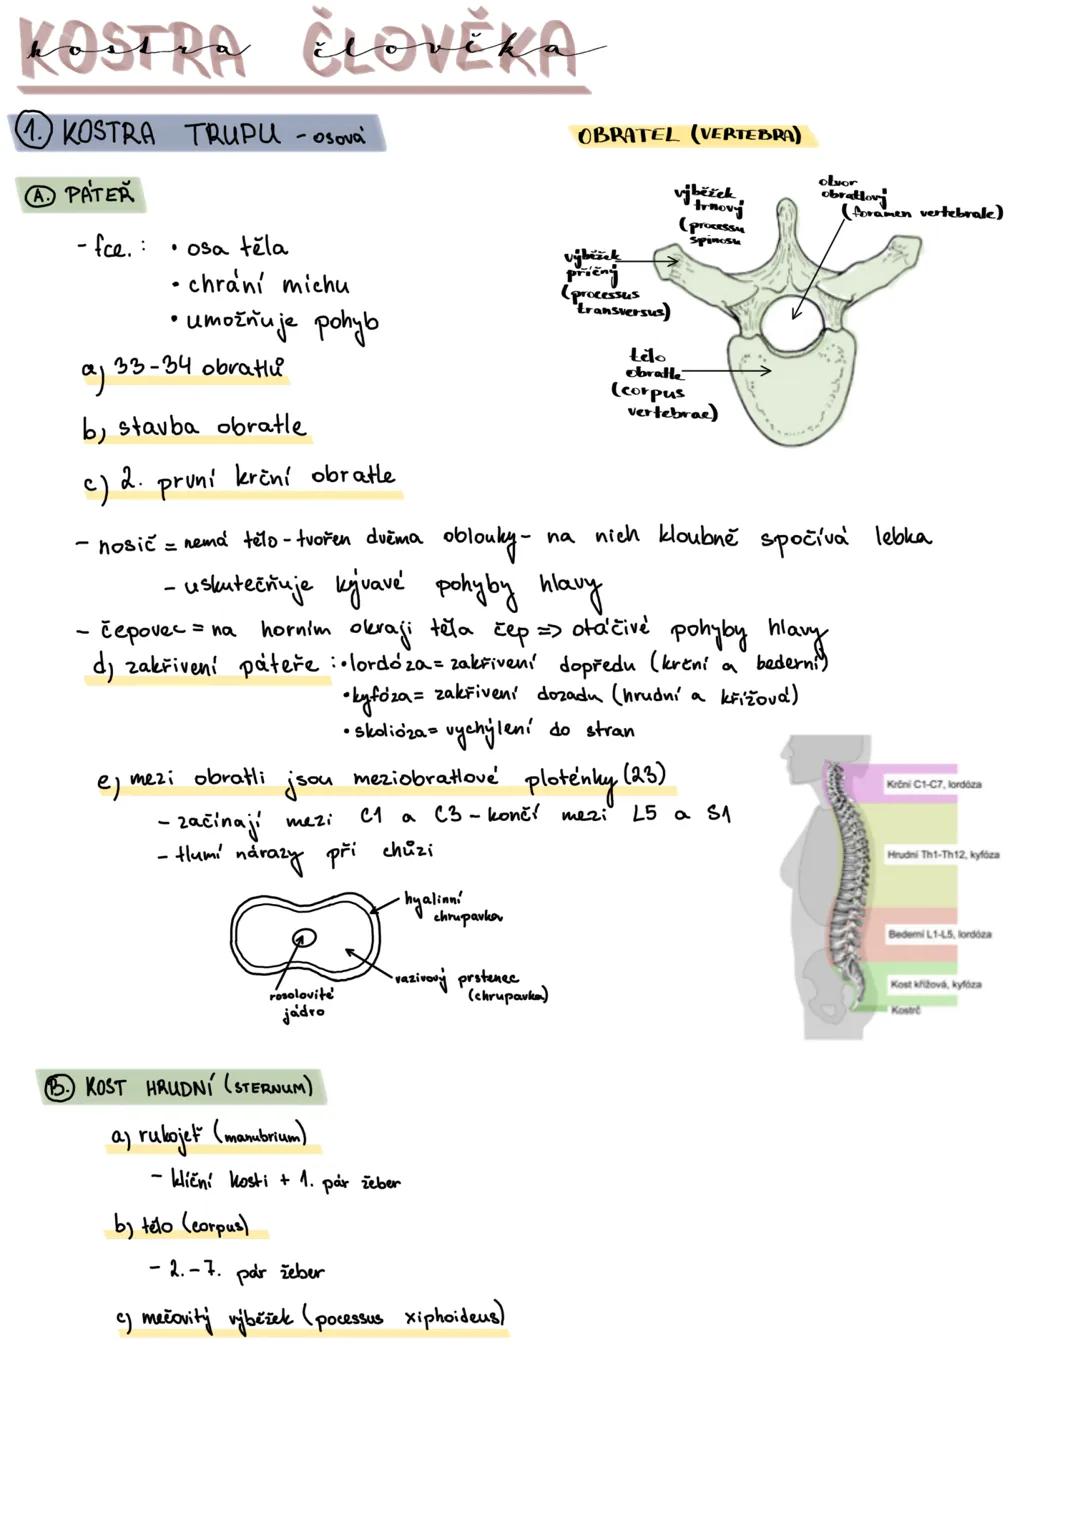 KOSTRA ČLOVĚKA
kostra člověka
1. KOSTRA TRUPU - osová
A. PÁTEŘ
- fce.: • osa těla
• chrání míchu
• umožňuje pohyb
a) 33-34 obratlů
b) stavba obratle
c) 2. první krční obratle
OBRATEL (VERTEBRA)
výběžek
trnový
(processu
spinosu
otvor
obratlový
(foramen vertebrale)
výběžek
příčný
(processus
transversus)
tělo
obratle
(corpus
vertebrae)
- nosič = nemá tělo - tvořen dvěma oblouky - na nich kloubně spočívá lebka
- uskutečňuje kývavé pohyby hlavy
- čepovec = na horním okraji těla čep => otáčivé pohyby hlavy
d) zakřivení páteře : • lordóza = zakřivení dopředu (krční a bederní)
• kyfóza = zakřivení dozadu (hrudní a křížová)
• skolióza = vychýlení do stran
e) mezi obratli jsou meziobratlové ploténky (23)
- začínají mezi C1 a C3 - končí mezi L5 a S1
- tlumí nárazy při chůzi
hyalinní
chrupavka
vazivový prstenec
(chrupavka)
rosolovité
jádro
Krční C1-C7, lordóza
Hrudní Th1-Th12, kyfóza
Bederní L1-L5, lordóza
Kost křížová, kyfóza
Kostrč
B. KOST HRUDNÍ (STERNUM)
a) rukojeť (manubrium)
- klíční kosti + 1. pár žeber
b) tělo (corpus)
- 2.-7. pár žeber
c) mečovitý výběžek (pocessus xiphoideus)